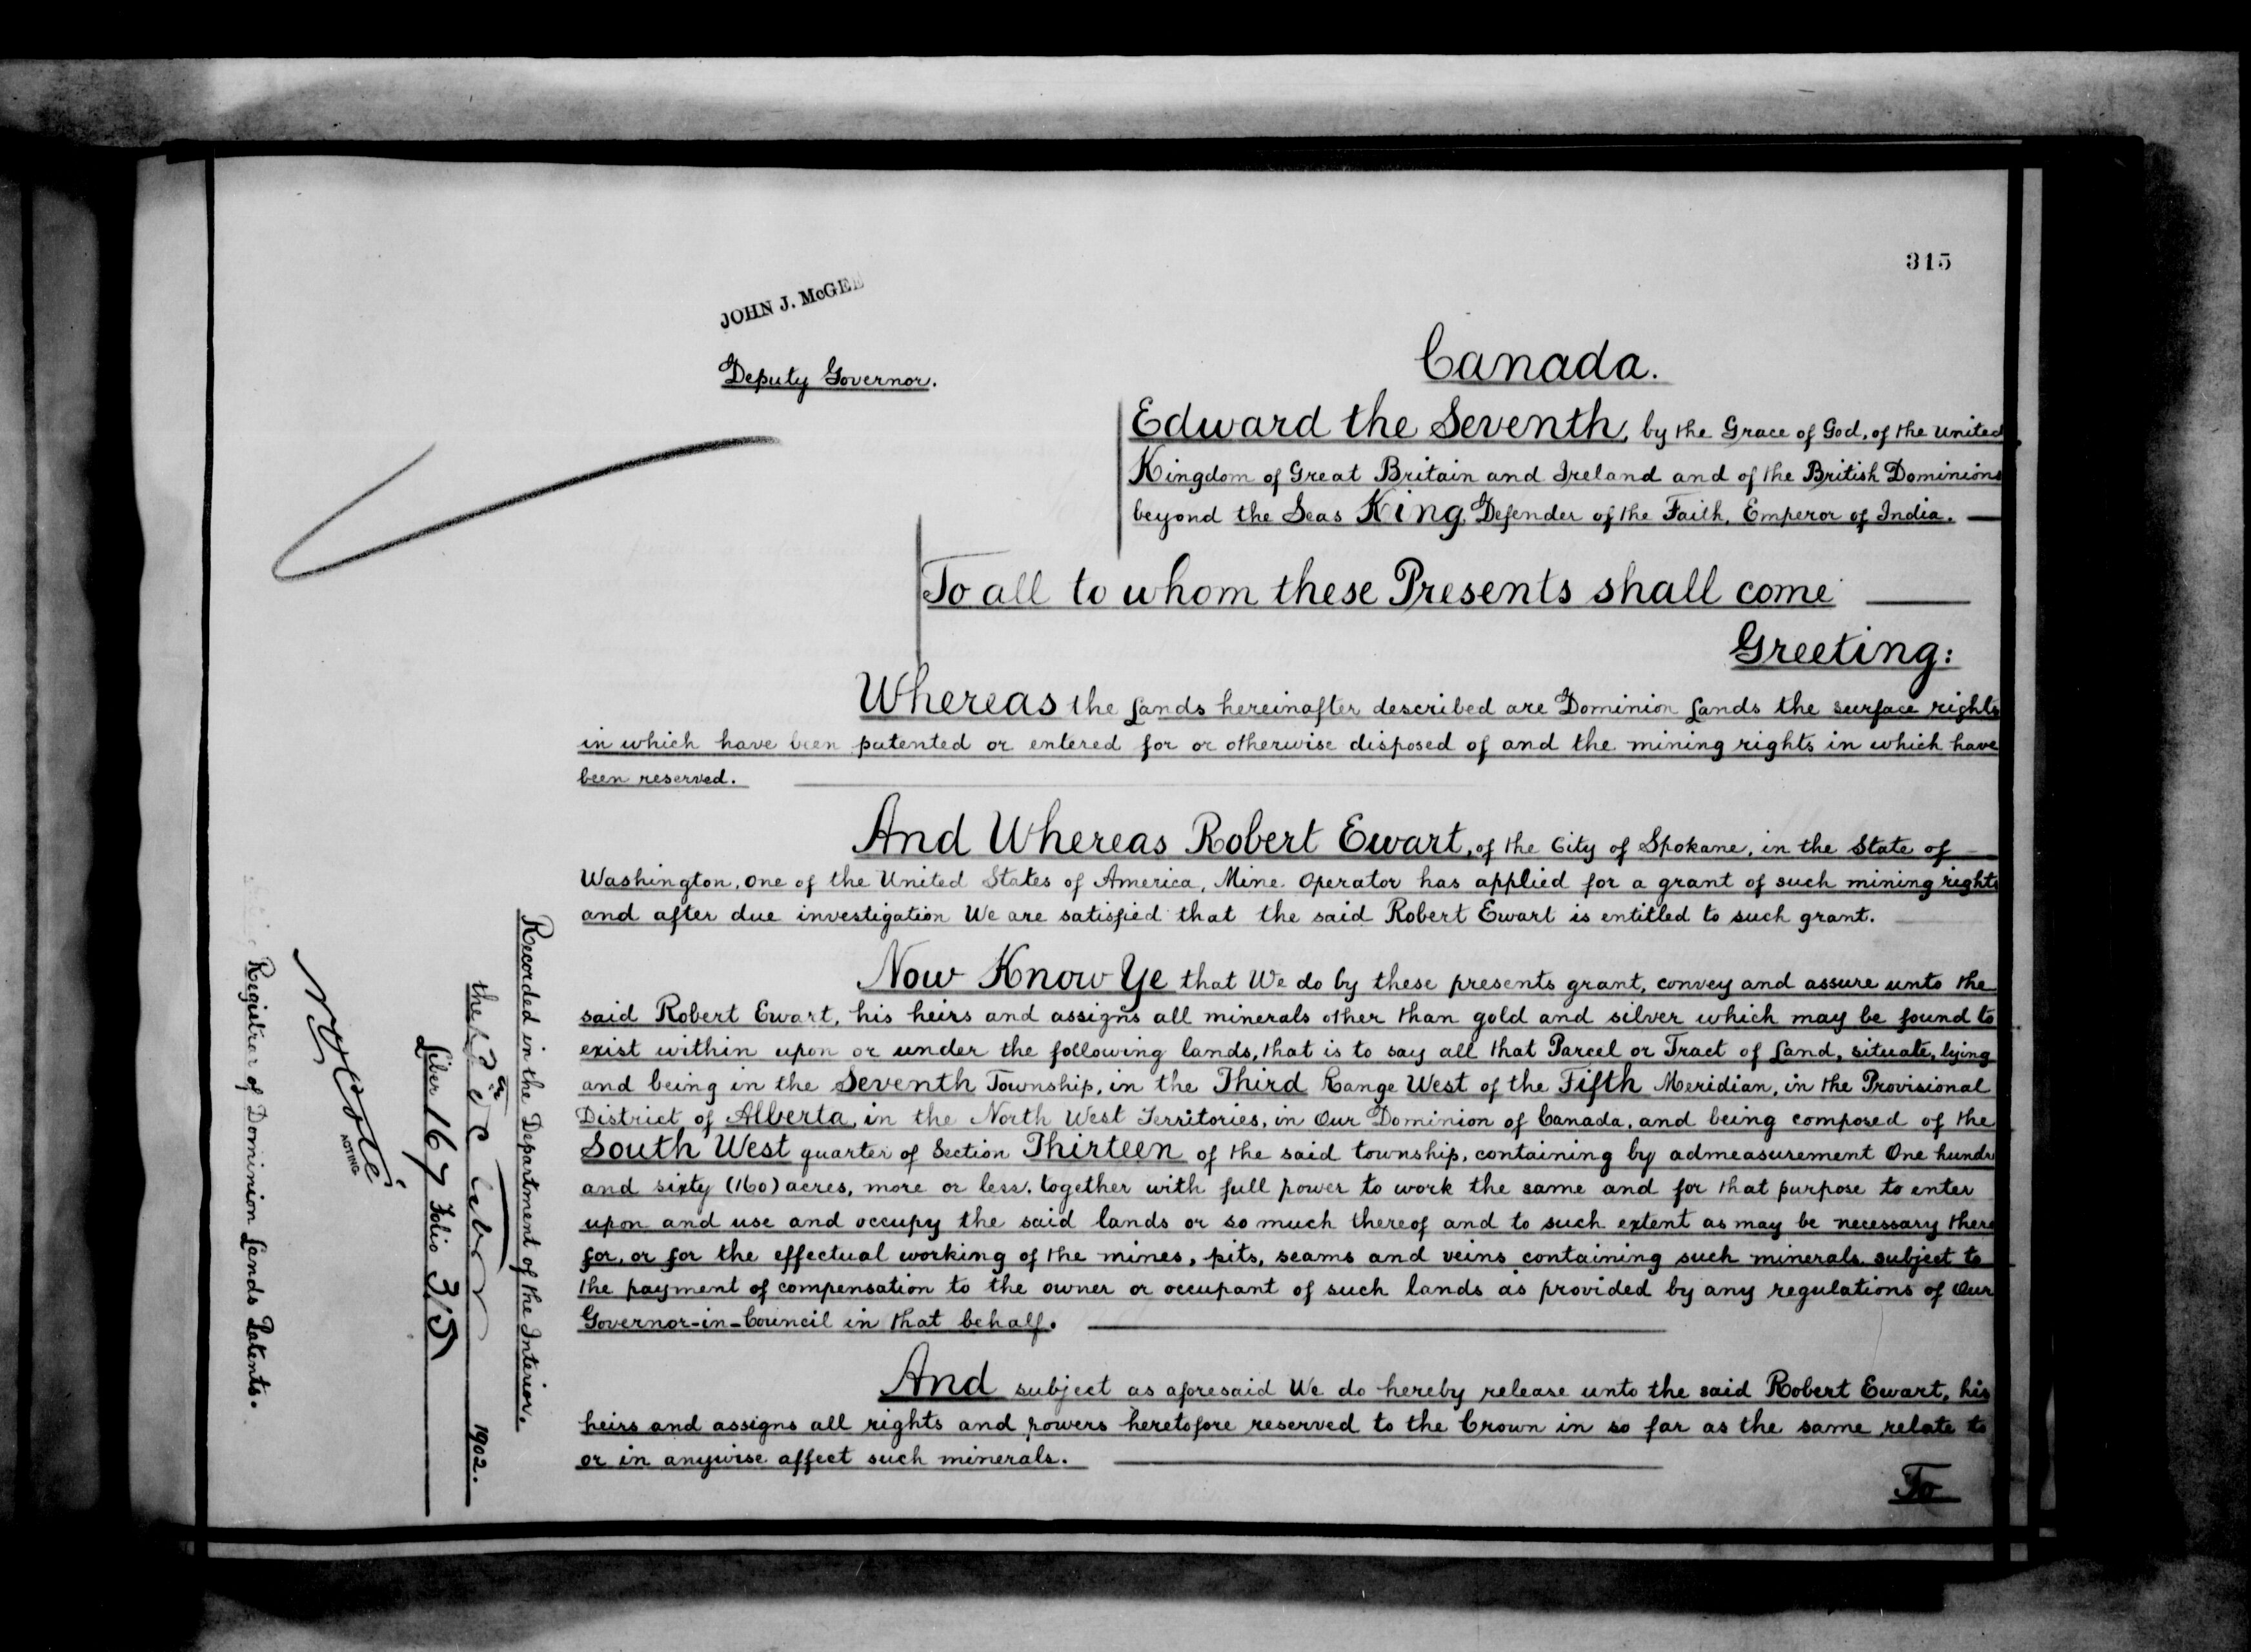 315
JOHN J. McGEE
Deputy Governor.
Canada.
Edward the Seventh, by the Grace of God, of the United
Kingdom of Great Britain and Ireland and of the British Dominions
beyond the Seas King, Defender of the Faith, Emperor of India.
To all to whom these Presents shall come
Greeting:
Whereas the Lands hereinafter described are Dominion Lands the surface rights
in which have been patented or entered for or otherwise disposed of and the mining rights in which have
been reserved.
And Whereas Robert Ewart, of the City of Spokane, in the State of
Washington, one of the United States of America, Mine Operator has applied for a grant of such mining rights
and after due investigation We are satisfied that the said Robert Ewart is entitled to such grant.
Now Know Ye that We do by these presents grant, convey and assure unto the
said Robert Ewart, his heirs and assigns all minerals other than gold and silver which may be found to
exist within upon or under the following lands, that is to say all that Parcel or Tract of Land, situate, lying
and being in the Seventh Township, in the Third Range West of the Fifth Meridian, in the Provisional
District of Alberta, in the North West Territories, in Our Dominion of Canada, and being composed of the
South West quarter of Section Thirteen of the said township, containing by admeasurement One hundr
and sixty (160) acres, more or less, together with full power to work the same and for that purpose to enter
upon and use and occupy the said lands or so much thereof and to such extent as may be necessary there
for, or for the effectual working of the mines, pits, seams and veins containing such minerals, subject to
the payment of compensation to the owner or occupant of such lands as provided by any regulations of Our
Governor-in-Council in that behalf.
And subject as aforesaid We do hereby release unto the said Robert Ewart, his
heirs and assigns all rights and powers heretofore reserved to the Crown in so far as the same relate to
or in anywise affect such minerals.
To
Recorded in the Department of the Interior,
the 1902.
Liber 167 Folio 315
ACTING
Registrar of Dominion Lands Patents.